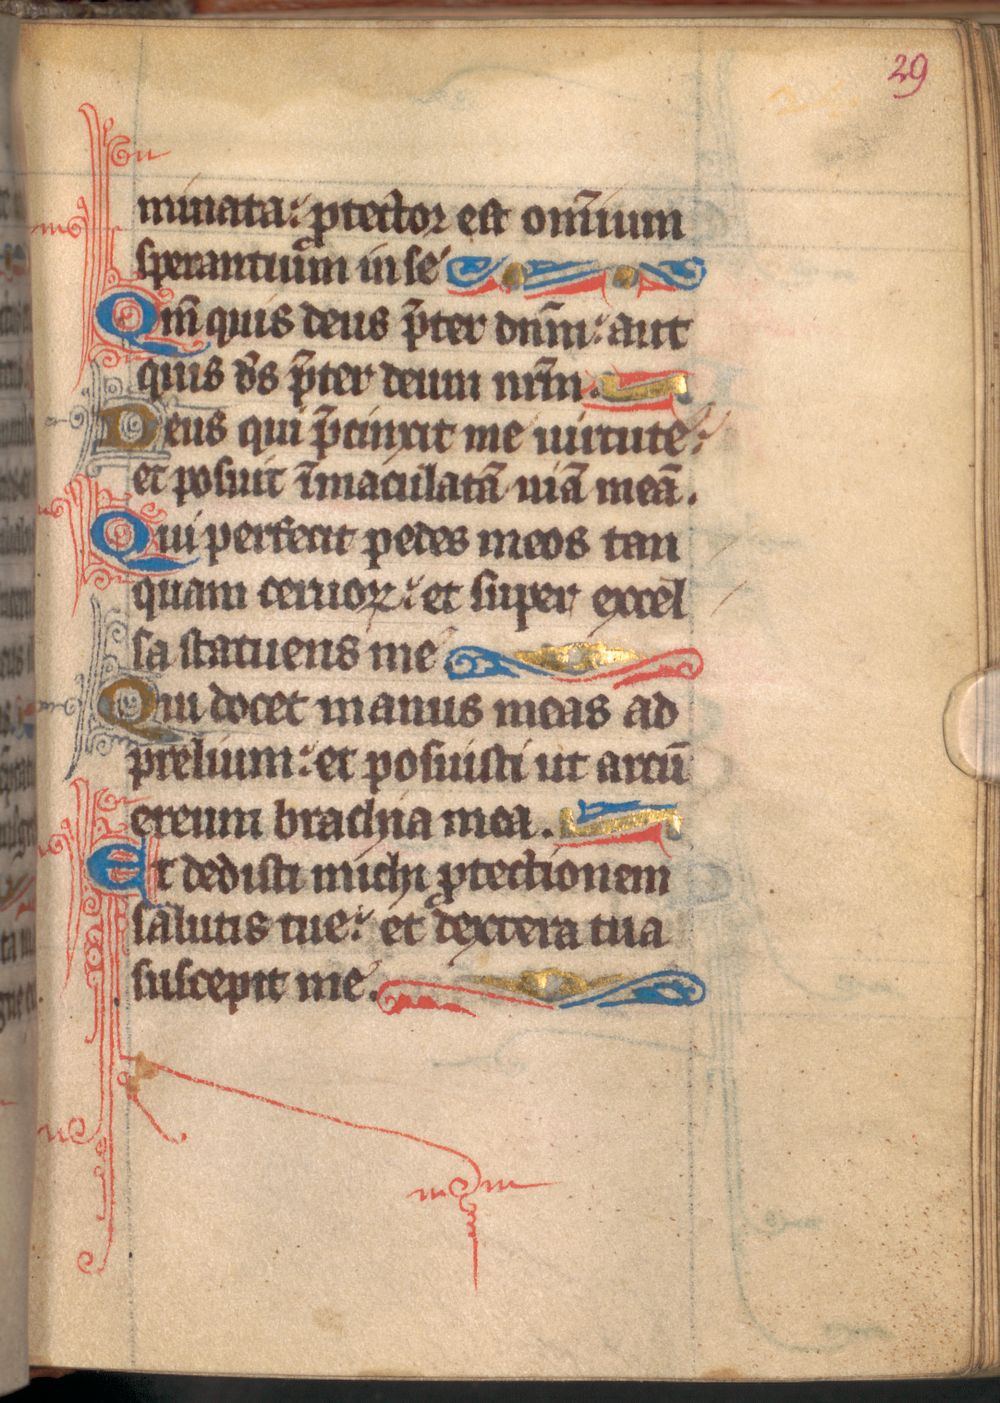 29
minata: ꝓtector est om̄ium
sperantium in se
Qm̄ quis deus p̄ter dnm̄: aut
quis ds̄ p̄ter deum nrm̄.
Deus qui p̄cinxit me uirtute:
et posuit īmaculatā uiā meā.
Qui perfecit pedes meos tan
quam ceruoꝝ: et super excel
sa statuens me
Qui docet manus meas ad
prelium: et posuisti ut arcū
ereum brachia mea.
Et dedisti michi ꝓtectionem
salutis tue: et dextera tua
suscepit me.